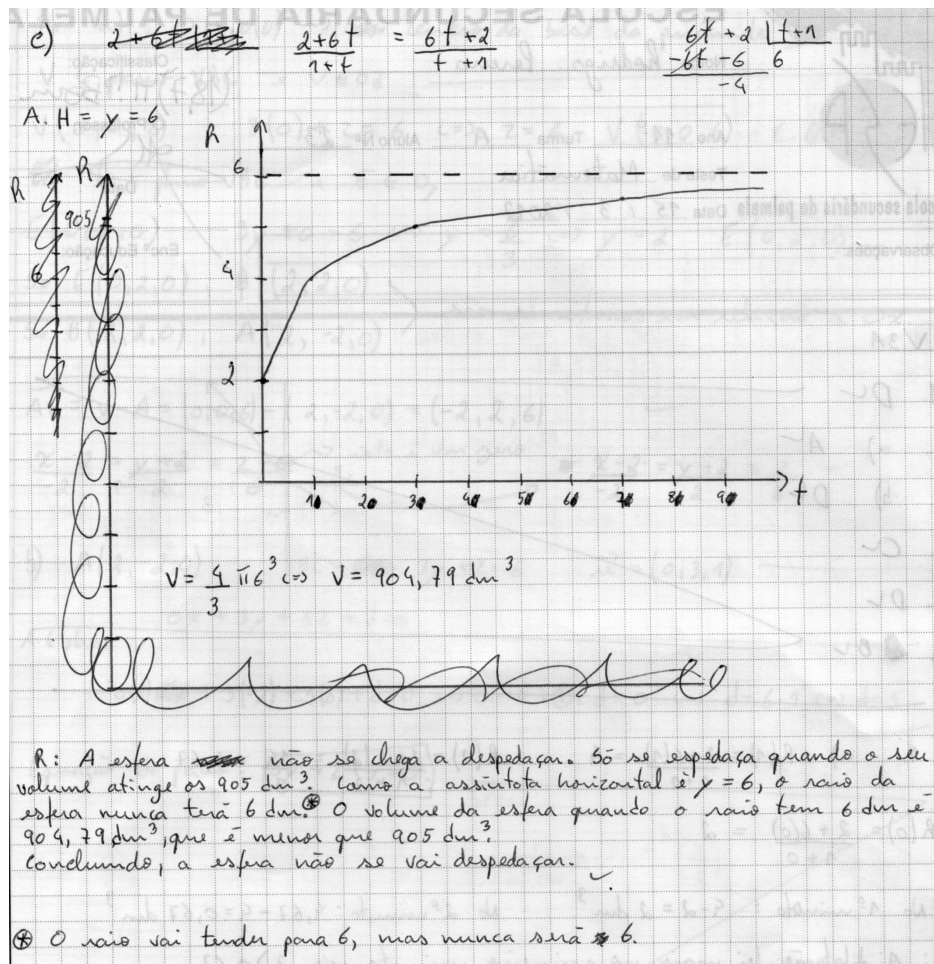 c) 2+6t/1+t = 6t+2/t+1
6t+2 | t+1
-6t-6 6
-4
A.H = y = 6
R
6
4
2
10 20 30 40 50 60 70 80 90 t
R R
905
6
V = 4/3 π6³ <=> V = 904,79 dm³
R: A esfera não se chega a despedaçar. Só se espedaça quando o seu
volume atinge os 905 dm³. Como a assíntota horizontal é y = 6, o raio da
esfera nunca terá 6 dm.⊛ O volume da esfera quando o raio tem 6 dm é
904,79 dm³, que é menor que 905 dm³.
Concluindo, a esfera não se vai despedaçar.
⊛ O raio vai tender para 6, mas nunca será 6.